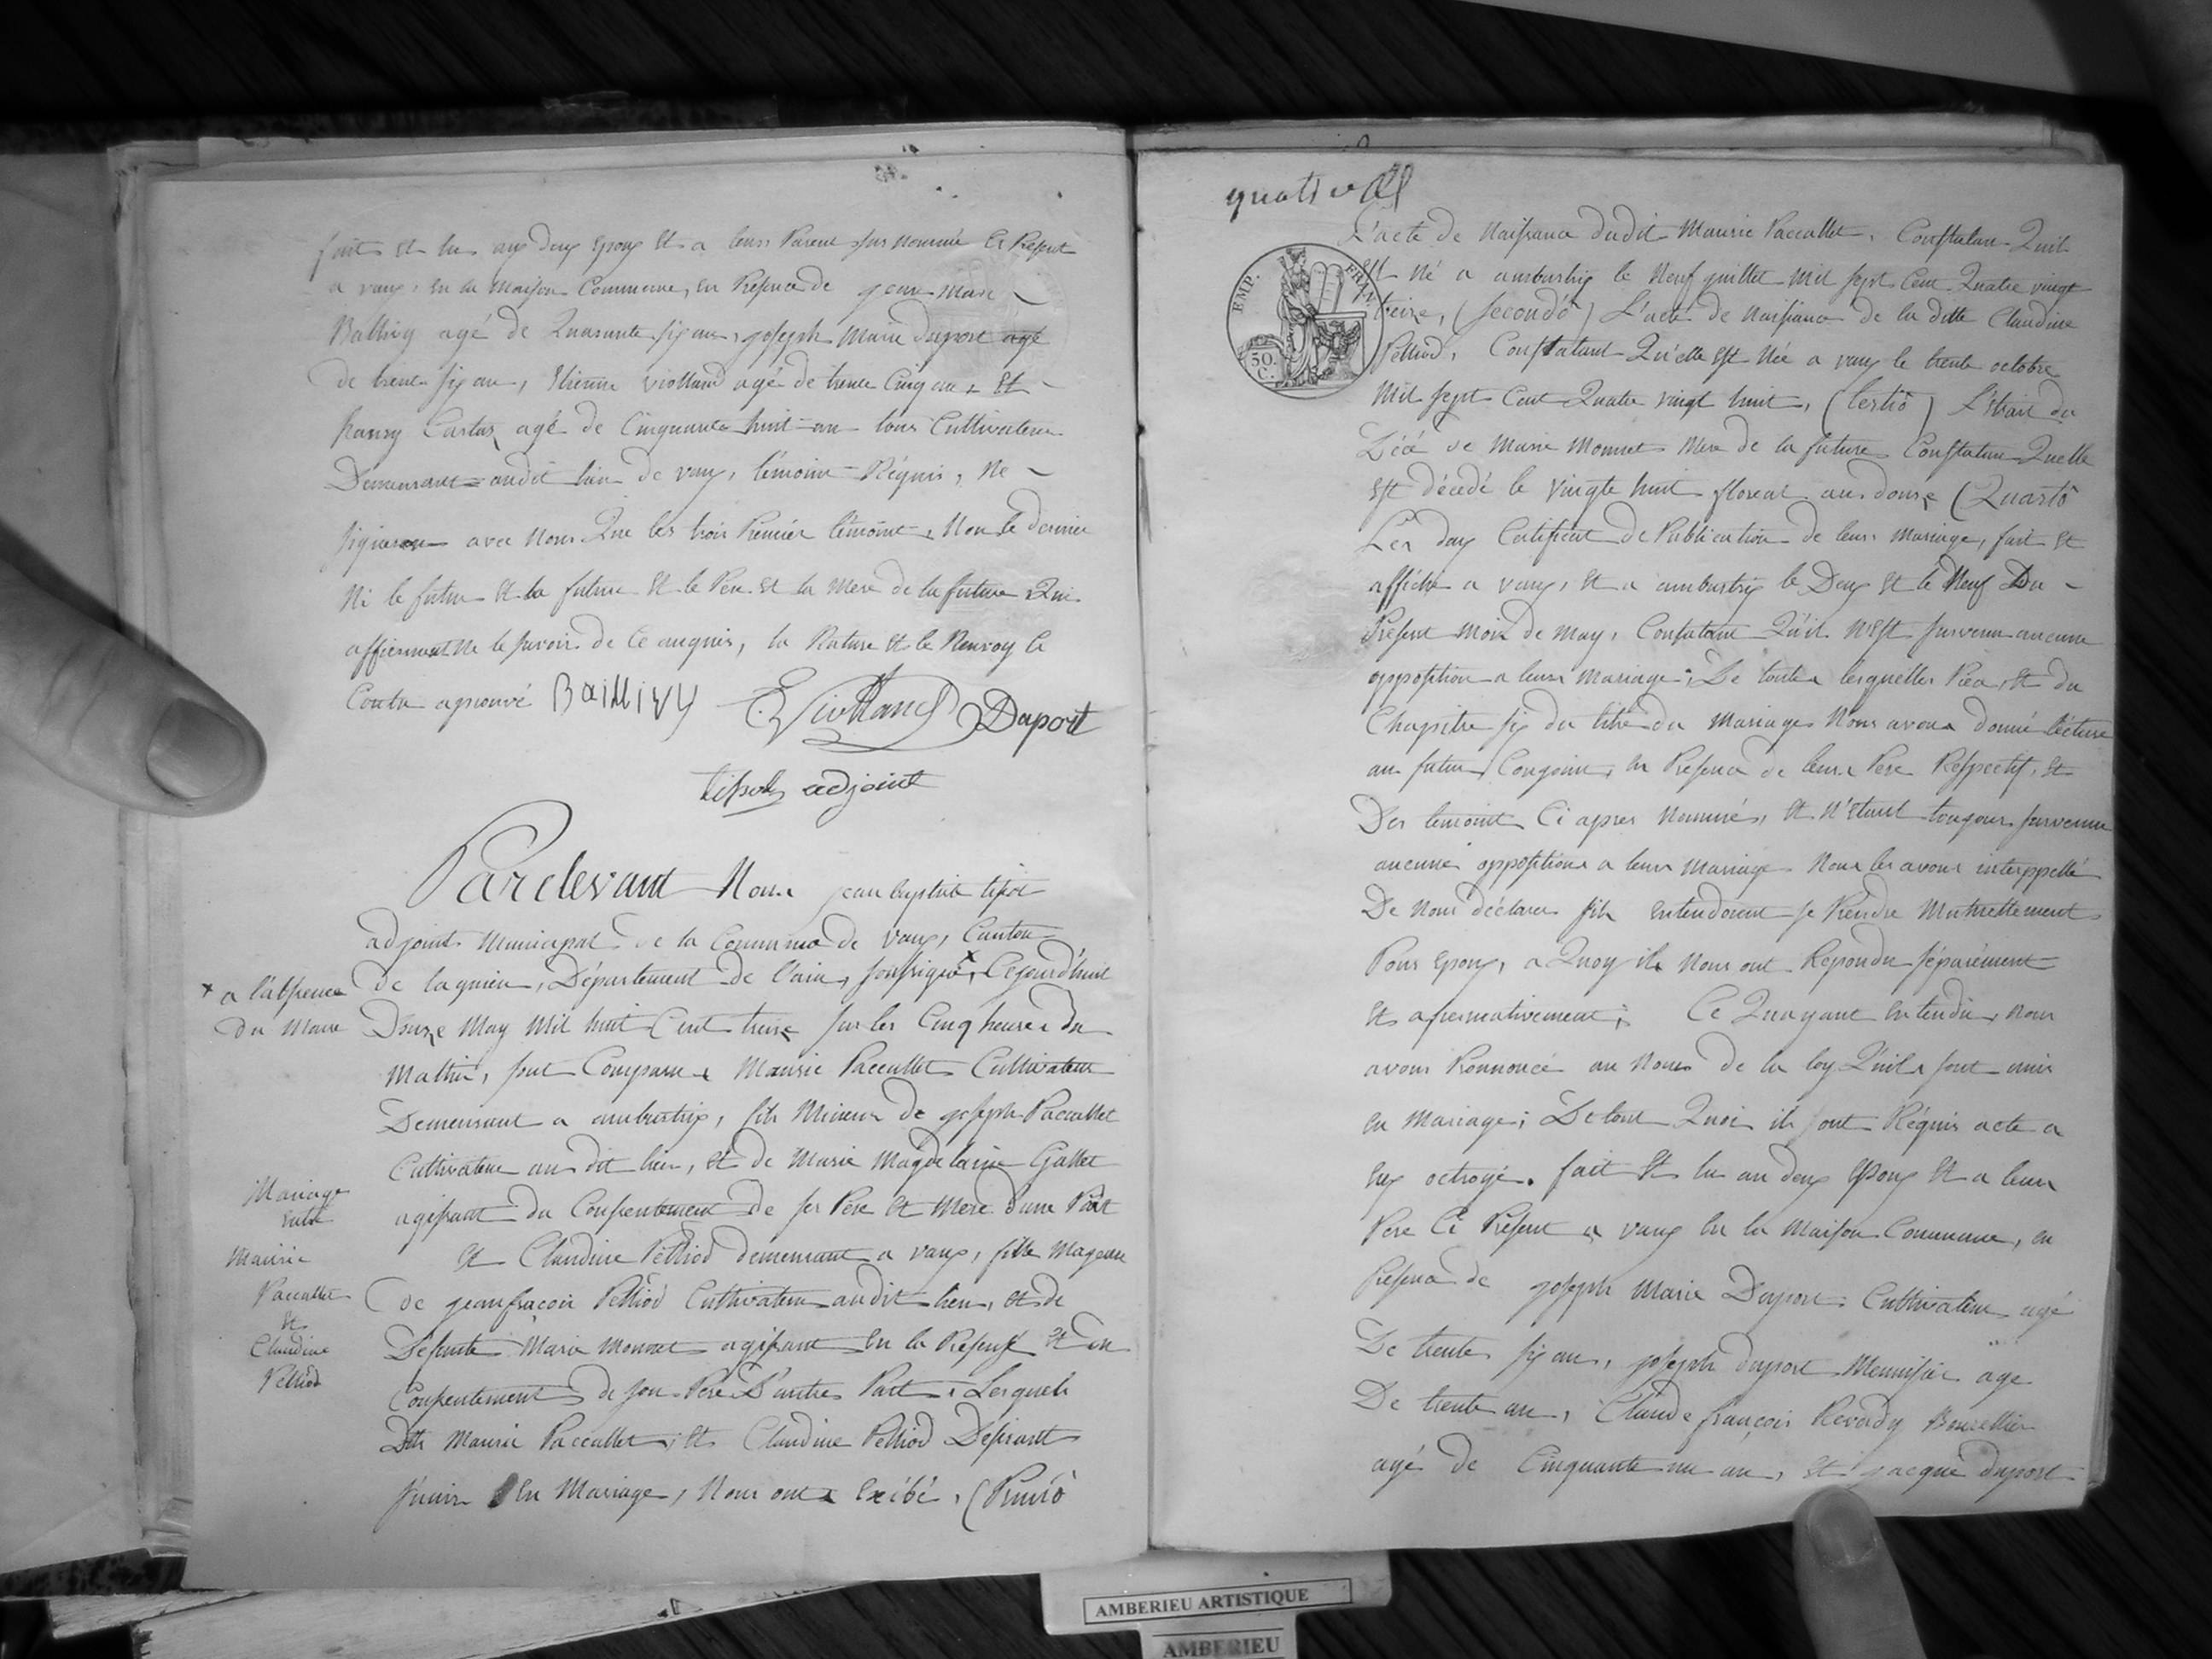 fait et lu aux deux Epoux et a leurs Parent sus nommée Et Present
a vaux, en la maison Commune, en Présence de jean Marie
Ballivy agé de Quarante six ans, joseph Marie duport agé
de trente six ans, Etienne violland agé de trente Cinq ans et
Cartaz agé de Cinquante huit ans tous Cultivateur
Demeurant audit lieu de vaux, témoins Réquis, Ne
signeron avec Nous Que les trois Premier témoins, Non le dernier
Ni le futur et la future et le Pere et la Mere de la future Qui
affirment Ne le savoir de Ce enquis, la Rature et le Renvoy Ci
Contre aprouvé Baillivy E. Violland Duport
tissot adjoint
Pardevant Nous jean baptiste tissot
adjoint Municipal de la Commune de vaux, Canton
x a l'absence
du Maire
de lagnieu, Département de l'ain, soussigné x, Cejourd'huit
Douze May Mil huit Cent treize sur les Cinq heures du
Mathin, sont Comparu Maurie Paccallet Cultivateur
Demeurant a ambutrix, fils Mineur de joseph Paccallet
Cultivateur au dit lieu, et de Marie Magdelaine Gallet
agissant du Consentement de ses Père et Mere d'une Part
Mariage
entre
Maurie
Paccallet
et
Claudine
Pelliod
et Claudine Pelliod demeurant a vaux, fille Mageure
de jean fraçois Pelliod Cultivateur audit lieu, et de
Defunte Marie Monnet agissant en la Présense et du
Consentement de son Pere D'autres Part. Lesquels
Dts Maurie Paccallet, et Claudine Pelliod Désirant
s'unir En Mariage, Nous ont Exibé, (Primò
quatre
L'acte de Naissance dudit Maurie Paccallet, Constatan Quil
est Né a ambustrix le Neuf juillet Mil sept Cent Quatre vingt
treize, (secondò) L'acte de Naissance de la ditte Claudine
Pelliod, Constatant Qu'elle est Née a vaux le trente octobre
Mil sept Cent Quatre vingt huit, (tertiò) L'etrait du
Décé de Marie Monnet Mere de la future Constatan Quelle
est décedé le vingte huit floreal an douze (Quartò
Les deux Certificat de Publication de leurs Mariage, fait et
affiché a vaux, et a ambustrix le Deux et le Neuf Du
Présent Mois de May, Constatant Qu'il N'est survenu aucune
opposition a leurs Mariage; De toutes lesquelles Pièces, et du
Chapitre six du titre du Mariages Nous avons donné lécture
au futurs Conjoint, en Présence de leurs Pere Respectif, et
Des témoins Ci apres Nommés, et N'étant toujours survenu
aucunes oppositions a leurs Mariage Nous les avons interppellé
De Nous déclarer s'ils entendoient se Prendre Mutuellement
Pour Epoux, a Quoy ils Nous ont Répondu séparément
et afirmativement; Ce Quayant Entendu, Nous
avons Prononcé au Nom de la loy Qu'ils sont unis
en Mariage; De tout Quoi ils sont Réquis acte a
eux octroyé. fait et lu au deux Epoux et a leurs
Pere Ci Présent a vaux en la Maison Commune, en
Présence de joseph Marie Duport Cultivateur agé
De trente six ans, joseph duport Menuisier agé
De trente ans, Claude françois Reverdy Bourellier
agé de Cinquante un an, et jacque duport
EMP. FRAN.
50.
C.
AMBERIEU ARTISTIQUE
AMBERIEU